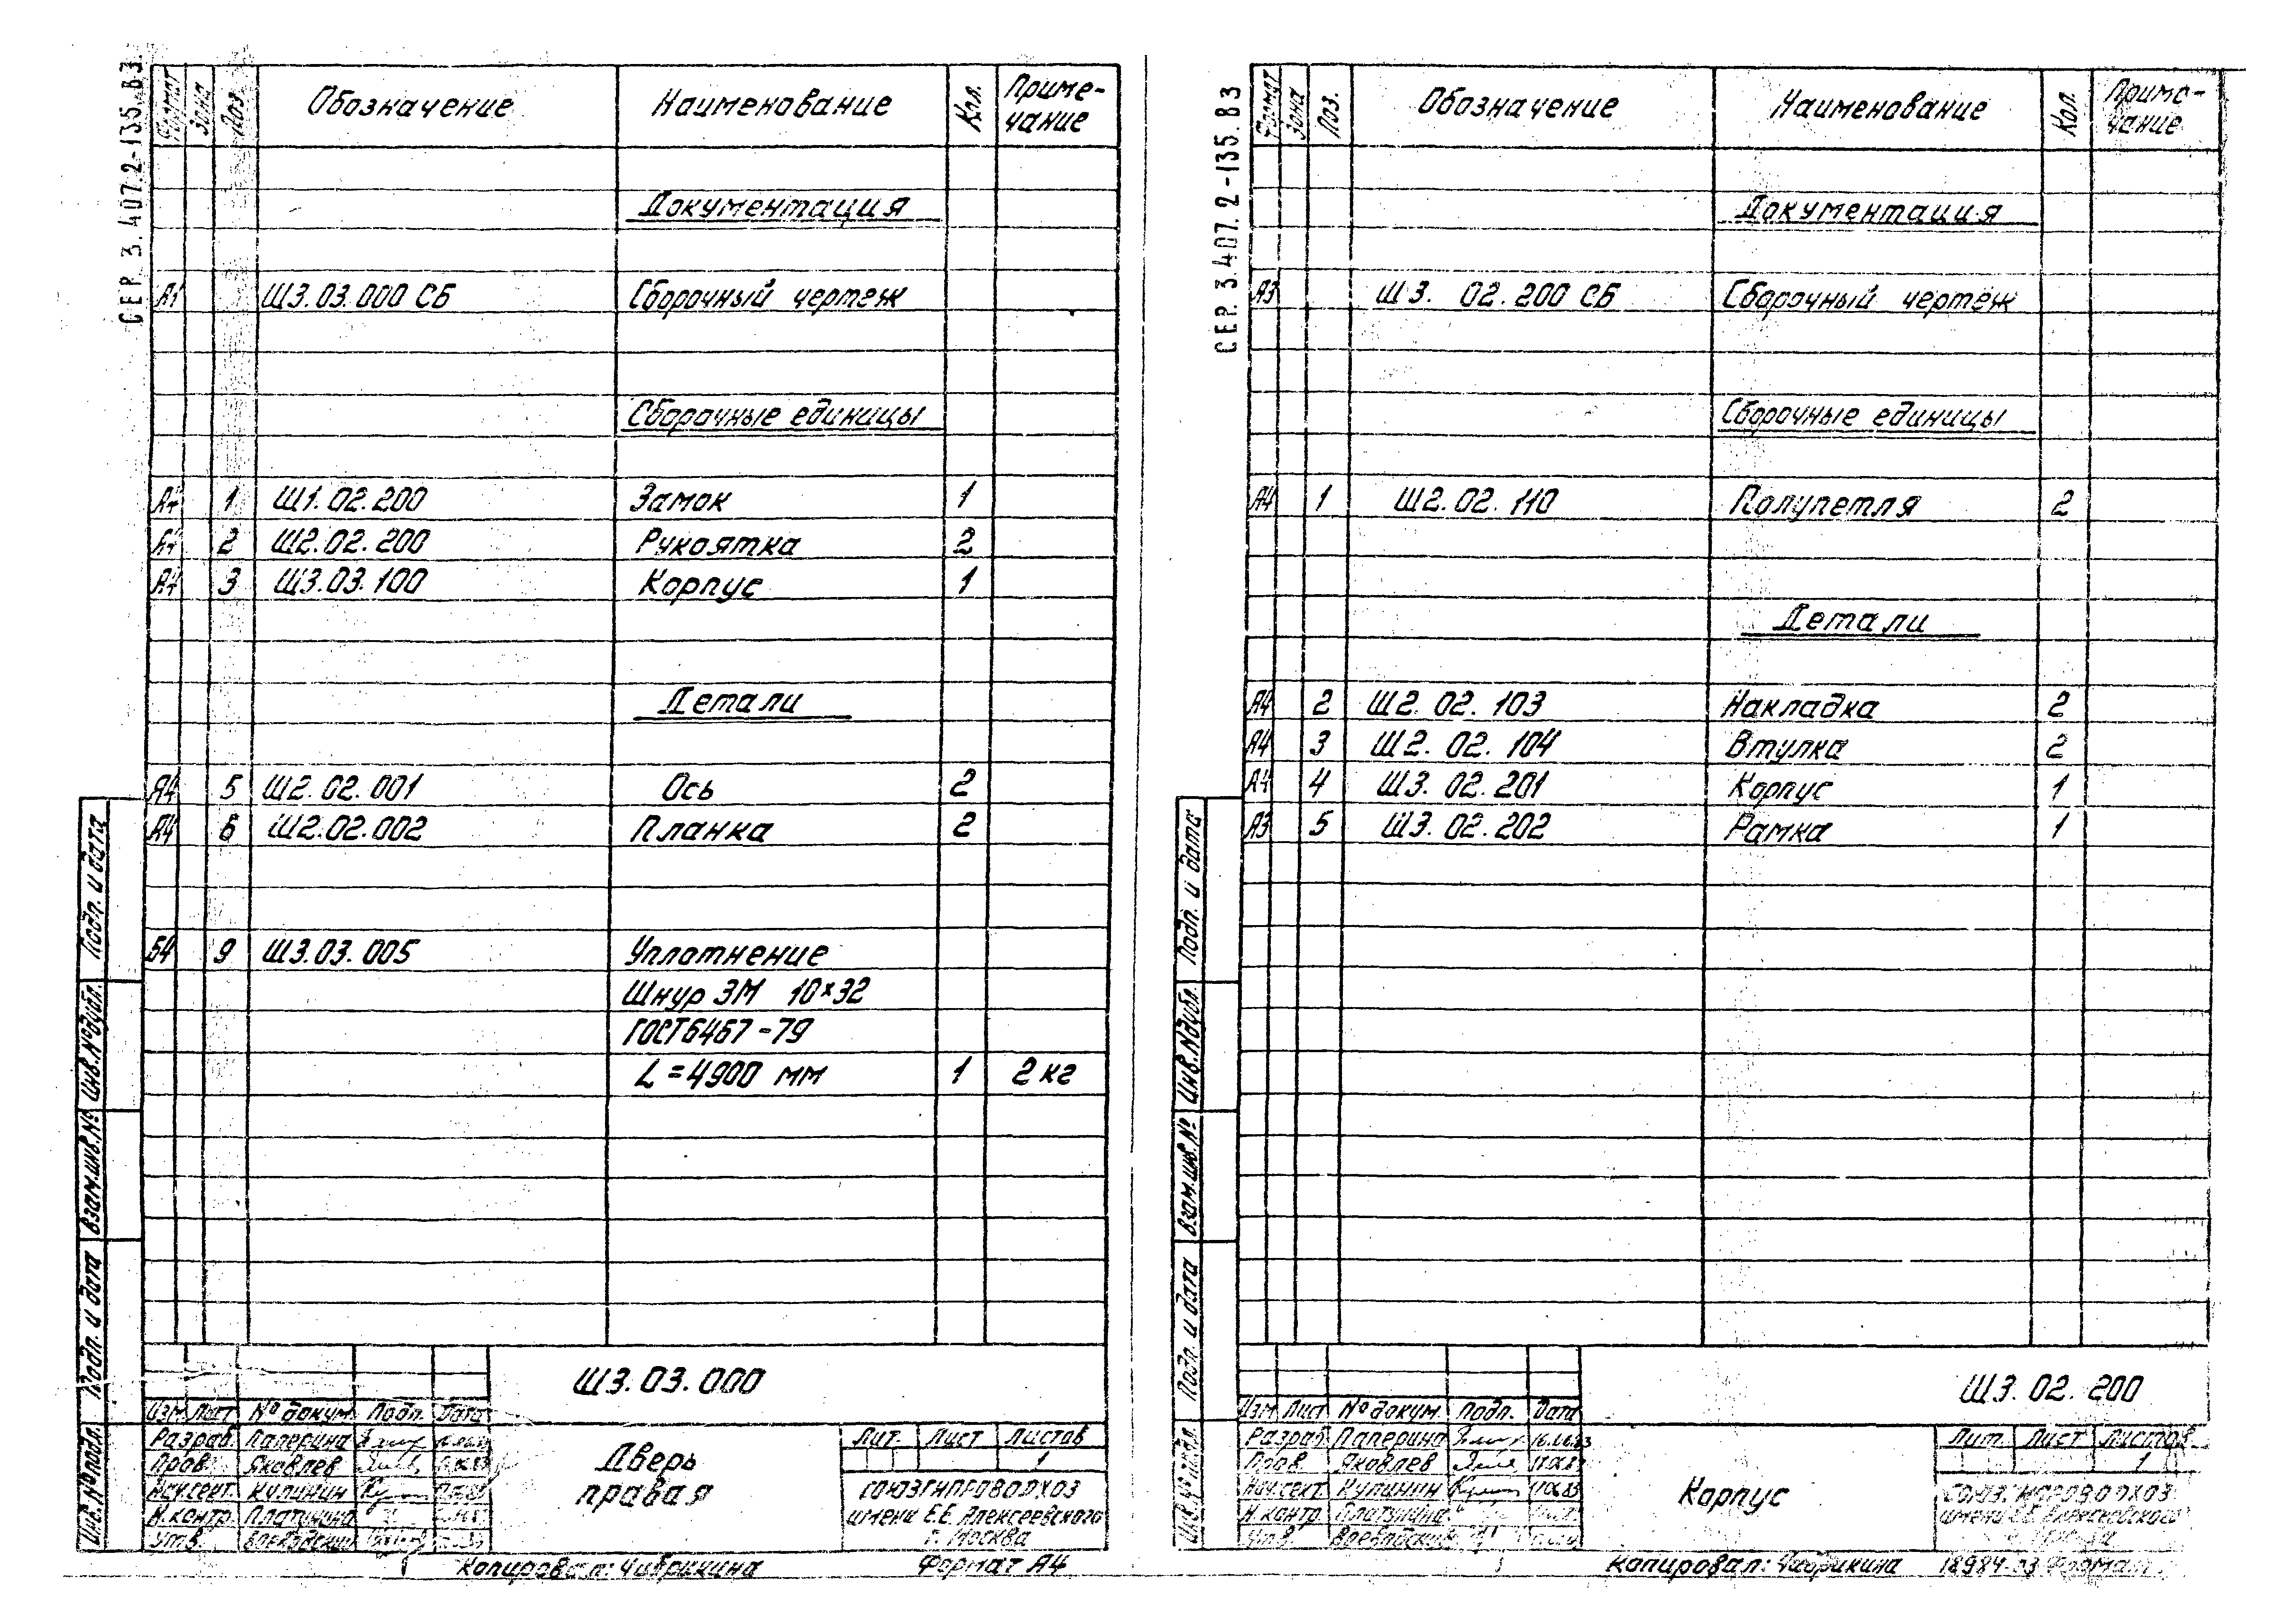 СЕР. 3.407.2-135.В3
Формат Зона Поз. Обозначение Наименование Кол. Приме-
чание
Документация
А1 Ш3.03.000 СБ Сборочный чертеж
Сборочные единицы
А4 1 Ш1.02.200 Замок 1
А4 2 Ш2.02.200 Рукоятка 2
А4 3 Ш3.03.100 Корпус 1
Детали
А4 5 Ш2.02.001 Ось 2
А4 6 Ш2.02.002 Планка 2
Б4 9 Ш3.03.005 Уплотнение
Шнур 3М 10×32
ГОСТ 6467-79
L=4900 мм 1 2 кг
Подп. и дата
Инв.№дубл.
Взам.инв.№
Подп. и дата
Инв.№подл.
Ш3.03.000
Изм Лист № докум. Подп. Дата
Разраб. Паперина
Пров. Яковлев
Нач.сект. Кулинин
Н.контр. Платунина
Утв.
Дверь
правая
Лит. Лист Листов
1
СОЮЗГИПРОВОДХОЗ
имени Е.Е. Алексеевского
г. Москва
Копировал: Чибрикина Формат А4
СЕР. 3.407.2-135.В3
Формат Зона Поз. Обозначение Наименование Кол. Приме-
чание
Документация
А3 Ш3. 02.200 СБ Сборочный чертеж
Сборочные единицы
А4 1 Ш2.02.110 Полупетля 2
Детали
А4 2 Ш2.02.103 Накладка 2
А4 3 Ш2.02.104 Втулка 2
А4 4 Ш3.02.201 Корпус 1
А3 5 Ш3.02.202 Рамка 1
Подп. и дата
Инв.№дубл.
Взам.инв.№
Подп. и дата
Инв.№подл.
Ш3.02.200
Изм Лист № докум. Подп. Дата
Разраб. Паперина
Пров. Яковлев
Нач.сект. Кулинин
Н.контр. Платунина
Утв.
Корпус
Лит. Лист Листов
1
имени Е.Е. Алексеевского
Копировал: Чибрикина 18984-03 Формат